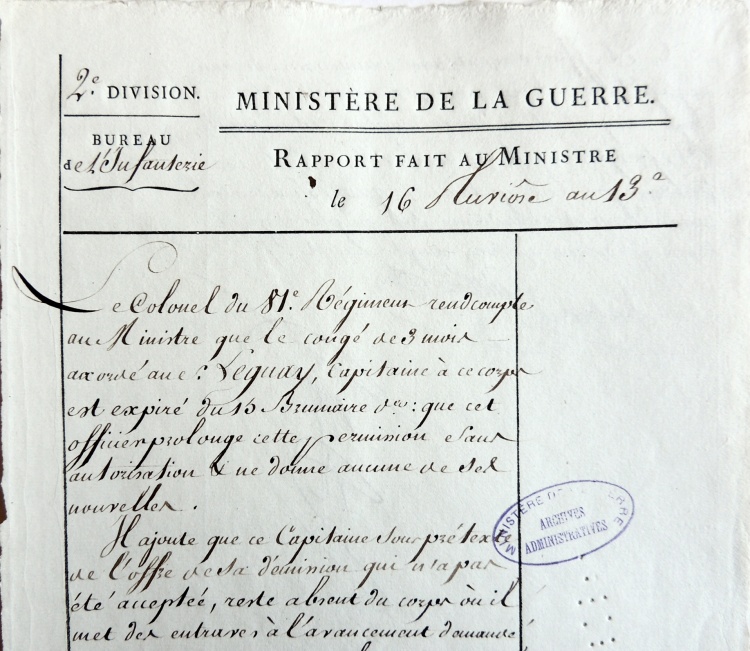 2.e DIVISION.
BUREAU
de l'Infanterie
MINISTÈRE DE LA GUERRE.
RAPPORT FAIT AU MINISTRE
le 16 Pluviôse an 13.e
Le Colonel du 81e. Régiment rend compte
au Ministre que le congé de 3 mois
accordé au c. Leguay, Capitaine à ce corps
est expiré du 15 Brumaire dr: que cet
officier prolonge cette permission sans
autorisation & ne donne aucune de ses
nouvelles.
Il ajoute que ce Capitaine sous prétexte
de l'offre de sa démission qui n'a pas
été acceptée, reste absent du corps où il
met des entraves à l'avancement demandé
MINISTÈRE DE LA GUERRE
ARCHIVES
ADMINISTRATIVES